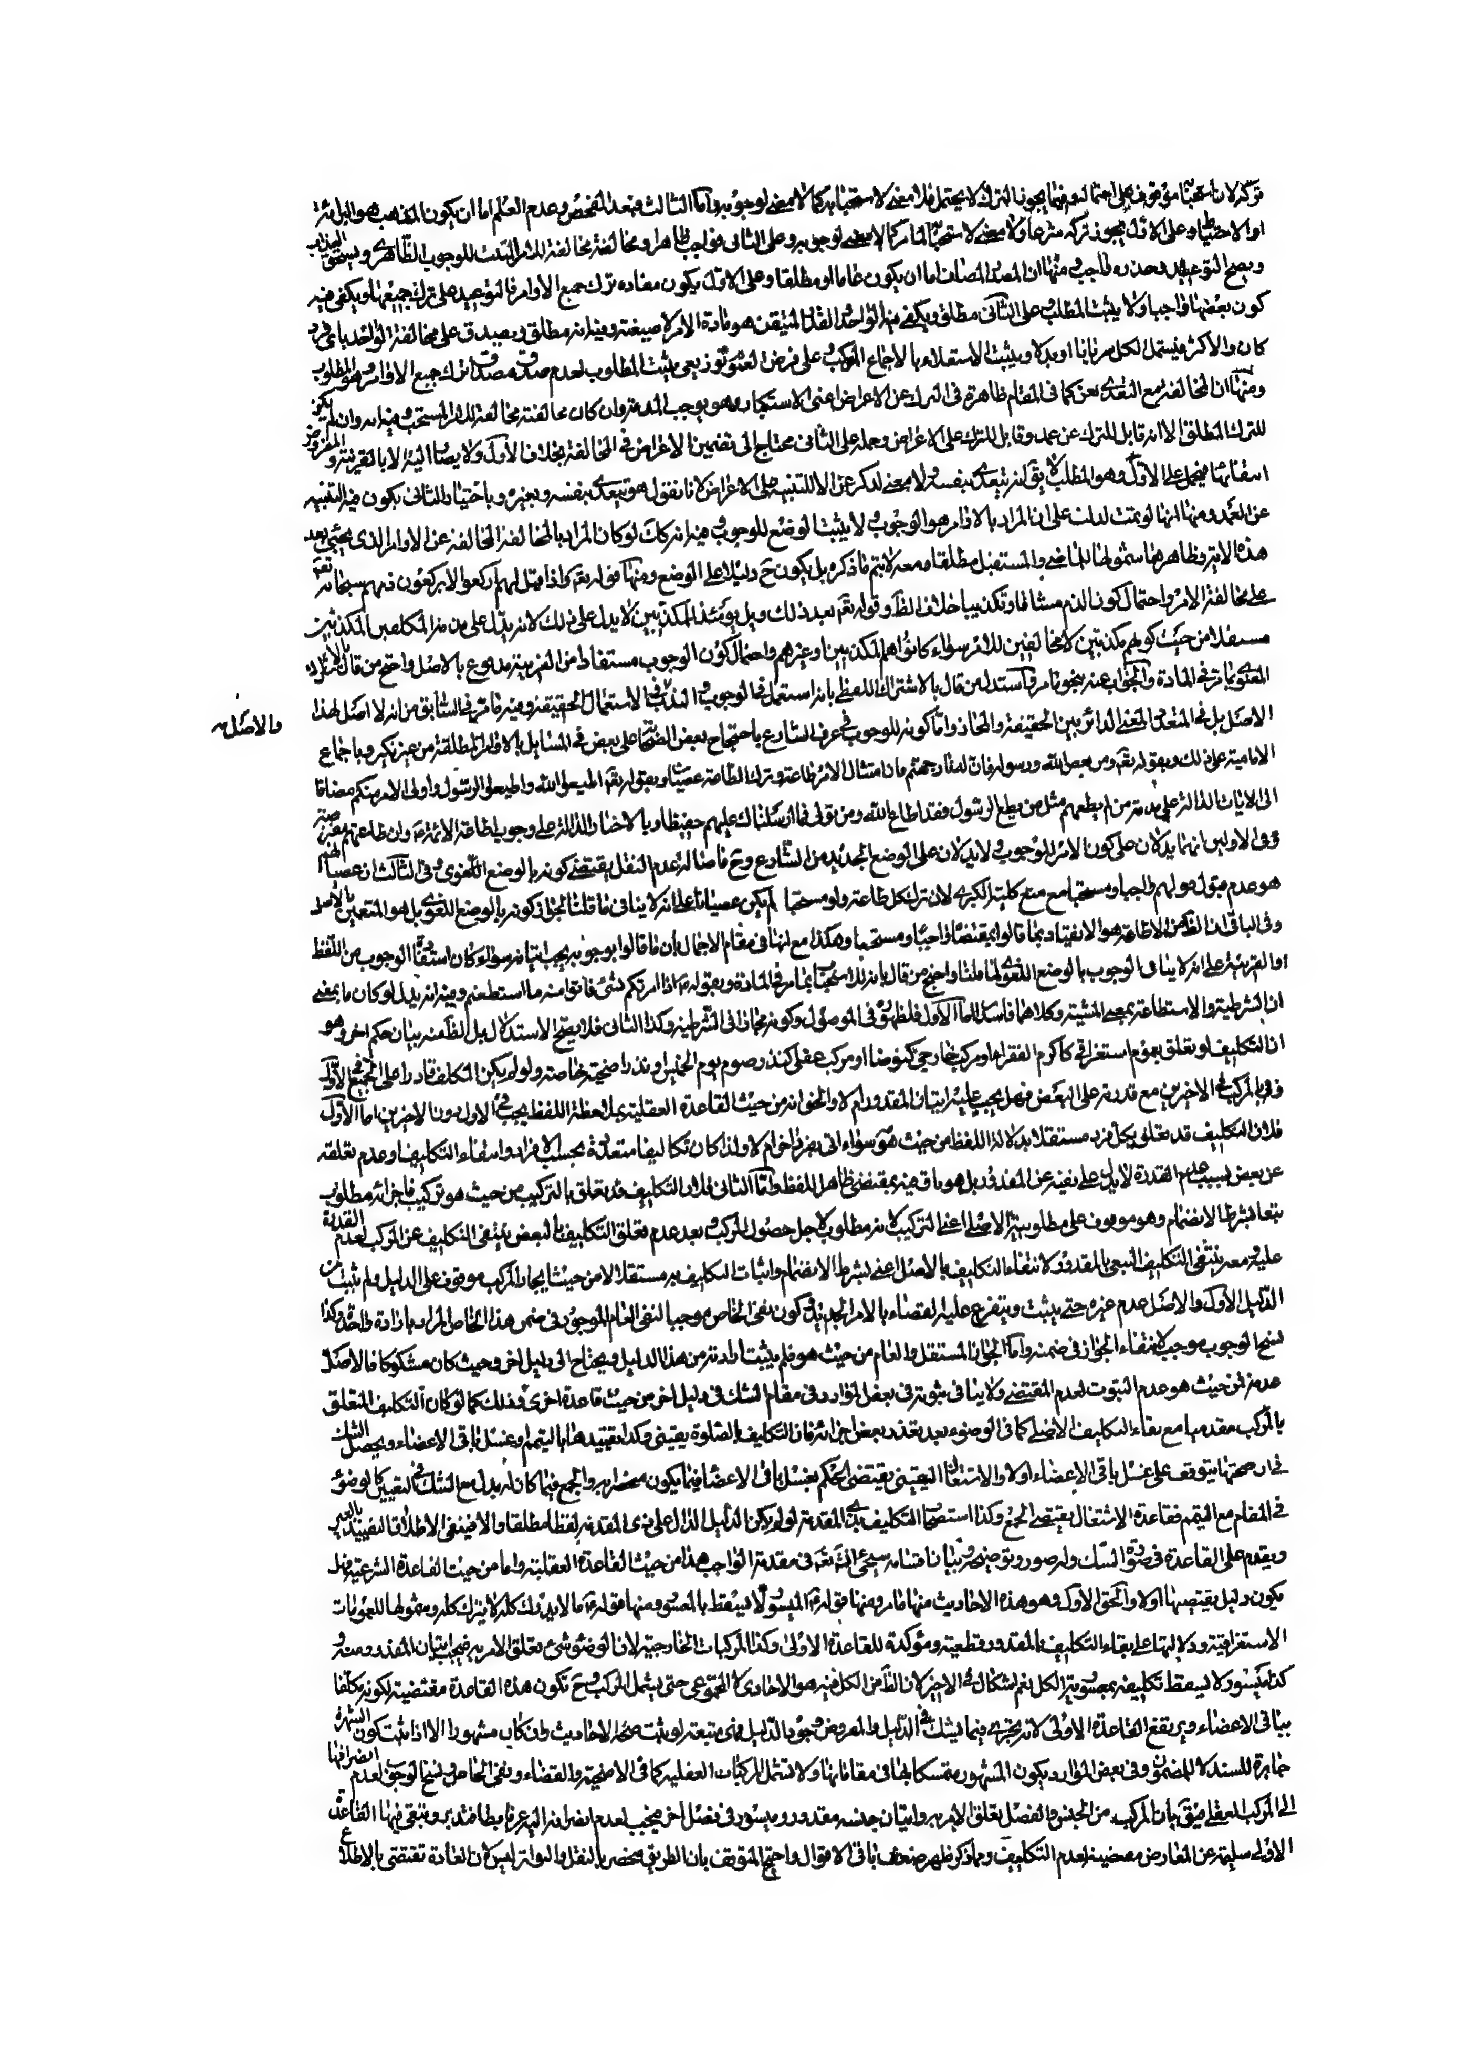 تركه لان استحبابه موقوف على احتماله وفيما يجوز الترك لا يحتمل فلا معنى لاستحبابه كما لا معنى لوجوبه واما الثالث فبعد الفحص وعدم العلم اما ان يكون المذهب هو البرائة
او الاحتياط وعلى الاول يجوز تركه شرعا ولا معنى لاستحباب الحذر كما لا معنى لوجوبه وعلى الثانى فواجب ظاهرا ومخالفته مخالفة للامر المثبت للوجوب الظاهرى ويستحق العذاب
ويصح التوعيد فحذره واجب ومنها ان المصدر المضاف اما ان يكون عاما او مطلقا وعلى الاول يكون مفاده ترك جميع الاوامر فالتوعيد على ترك جميعها ويكفى فيه
كون بعضها واجبا ولا يثبت المطلوب وعلى الثانى مطلق ويكفى فيه الواحد والقدر المتيقن هو مادة الامر لا صيغته وفيه انه مطلق ويصدق على مخالفة الواحد باى فرد
كان والاكثر فيشمل لكل مرتبة اما بدلا ويثبت الاستقلال بالاجماع المركب وعلى فرض العموم توزيعى يثبت المطلوب لعدم صدق ترك جميع الاوامر وهو المطلوب
ومنها ان المخالفة مع التعدى بعن كما فى المقام ظاهرة فى الترك عن الاعراض اعنى الاستكبار وهو يوجب المذمة وان كان مخالفته مخالفة للامر المستحب وفيه انه وان لم يكن
للترك المطلق الا انه قابل للترك عن عمد وقابل للترك على الاعراض وحمله على الثانى محتاج الى تضمين الاعراض فى المخالفة بخلاف الاول ولا يصار اليه الا بالقرينة والمفروض
انتفائها فيحمل على الاول وهو المطلب لا يق انه يتعدى بنفسه ولا معنى لذكر عن الا للتنبيه على الاعراض لانا نقول هو يتعدى بنفسه وبغيره وباختيار الثانى يكون فيه التنبيه
عن العمد ومنها انها لو تمت لدلت على ان المراد بالاوامر هو الوجوب ولا يثبت الوضع للوجوب وفيه انه كان لو كان المراد بالمخالفة المخالفة عن الاوامر الذى يجيئ بعد
هذه الاية وظاهرها شمولها للماضى والمستقبل مطلقا ومعه لا يتم ما ذكره بل يكون ح دليلا على الوضع ومنها قوله تعه واذا قيل لهم اركعوا لا يركعون ذمهم سبحانه تعه
على مخالفة الامر واحتمال كون الذم مشافها وتكذيبا خلاف الظ وقوله تعه بعد ذلك ويل يومئذ للمكذبين لا يدل على ذلك لانه يدل على ذم هذا المكلفين المكذبين
مستقلا من حيث كونهم مكذبين لا مخالفين للامر سواء كانوا هم المكذبين او غيرهم واحتمال كون الوجوب مستفادا من القرينة مدفوع بالاصل واحتج من قال بالاشتراك
المعنوى بما مر فى المادة والجواب عنه بنحو ما مر واستدل من قال بالاشتراك اللفظى بانه استعمل فى الوجوب والندب والاصل فى الاستعمال الحقيقة وفيه ما مر فى السابق من انه لا اصل لهذا
والاصل
الاصل بل فى المتعدد المعنى الدائر بين الحقيقة والمجاز واما كونه للوجوب فى عرف الشارع باحتجاج بعض الصحابة على بعض فى المسايل بالاوامر المطلقة من غير نكير وباجماع
الامامية على ذلك وبقوله تعه ومن يعص الله ورسوله فان له نار جهنم فان امتثال الامر طاعة وترك الطاعة عصيان وبقوله تعه اطيعوا الله واطيعوا الرسول واولى الامر منكم مضافا
الى الايات الدالة على مذمة من لم يطعهم مثل من يطع الرسول فقد اطاع الله ومن تولى فما ارسلناك عليهم حفيظا وبالاخبار الدالة على وجوب اطاعة الائمة وان طاعتهم مفترضة
وفى الاولين انهما يدلان على كون الامر للوجوب ولا يدلان على الوضع الجديد من الشارع وح فاصالة عدم النقل يقتضى كونه بالوضع اللغوى وفى الثالث ان عصيانهما
هو عدم قبول قولهم واجبا ومستحبا مع منع كلية الكبرى لان ترك كل طاعة ولو مستحبا لم يكن عصيانا على انه لا ينافى ما قلنا لجواز كونه بالوضع اللغوى بل هو المتعين بالاصل
وفى الباقى ان القدر من الاطاعة هو الانقياد بما قالوا بمقتضاه واجبا ومستحبا وهكذا مع انها فى مقام الاجمال وان ما قالوا بوجوبه يجب اتيانه سواء كان استفادة الوجوب من اللفظ
او القرينة على انه لا ينافى الوجوب بالوضع اللغوى لما قلنا واحتج من قال بانه للاستحباب بما مر فى المادة وبقوله ص اذا امرتكم بشئ فاتوا منه ما استطعتم وفيه انه يدل لو كان ما بمعنى
ان الشرطية والاستطاعة بمعنى المشية وكلاهما فاسد اما الاول فلظهوره فى الموصول وكونه مجازا فى الشرطية وكذا الثانى فلا يصح الاستدلال بل لظ منه بيان حكم اخر وهو
ان التكليف لو تعلق بعموم استغراقى كاكرم الفقراء او مركب خارجى كتوضا او مركب عقلى كنذر صوم يوم الخميس ونذر اضحية خاصة ولو لم يكن المكلف قادرا على الجميع فى الاول
وفى المركب فى الاخيرين مع قدرته على البعض فهل يجب عليه اتيان المقدور ام لا والحق انه من حيث القاعدة العقلية بملاحظة اللفظ يجب فى الاول دون الاخيرين اما الاول
فلان التكليف قد تعلق بكل فرد مستقلا بدلالة اللفظ من حيث هو سواء اتى بفرد اخر ام لا ولذا كان تكاليفا متعددة بحسب الافراد وانتفاء التكليف وعدم تعلقه
عن بعض بسبب عدم القدرة لا يدل على نفيه عن المقدور بل هو باق فيه بمقتضى ظاهر اللفظ واما الثانى فلان التكليف قد تعلق بالتركيب من حيث هو تركيب فاجزائه مطلوب
تبعا بشرط الانضمام وهو موقوف على مطلوبية الاصل اعنى التركيب لانه مطلوب لاجل حصول المركب وبعد عدم تعلق التكليف بالبعض ينتفى التكليف عن المركب لعدم القدرة
عليه ومعه ينتفى التكليف التبعى بالمقدور لانتفاء التكليف بالاصل اعنى بشرط الانضمام واثبات التكليف به مستقلا لا من حيث ايجاد المركب موقوف على الدليل ولم يثبت من
الدليل الاول والاصل عدم غيره حتى يثبت ويتفرع عليه القضاء بالامر الجديد وكون نفى الخاص موجبا لنفى العام الموجود فى ضمن هذا الخاص المراد بارادة واحدة وكذا
نسخ الوجوب موجب لانتفاء الجواز فى ضمنه واما الجواز المستقل والعام من حيث هو فلم يثبت ارادته من هذا الدليل ويحتاج الى دليل اخر وحيث كان مشكوكا فالاصل
عدمه من حيث هو عدم الثبوت لعدم المقتضى ولا ينافى ثبوته فى بعض الموارد فى مقام الشك فى دليل اخر من حيث قاعدة اخرى وذلك كما لو كان التكليف المتعلق
بالمركب مقدميا مع بقاء التكليف الاصلى كما فى الوضوء بعد تعذر بعض اجزائه فان التكليف بالصلوة يقينى وكذا تقييدها بالتيمم او غسل باقى الاعضاء ويحصل الشك
فى ان صحتها يتوقف على غسل باقى الاعضاء اولا والاشتغال اليقينى يقتضى الحكم بغسل باقى الاعضاء فيما يكون منحصرا به والجمع فيما كان له بدل مع الشك فى التعيين كالوضوء
فى المقام مع التيمم فقاعدة الاشتغال يقتضى الجمع وكذا استصحاب التكليف بذى المقدمة لو لم يكن الدليل الدال على ذى المقدمة لفظا مطلقا والا فينفى الاطلاق التقييد بالغير
ويقدم على القاعدة فى صورة الشك وله صور وتوضيحه وبيان اقسامه سيجئ انش تعه فى مقدمة الواجب هذا من حيث القاعدة العقلية واما من حيث القاعدة الشرعية فهل
يكون دليل يقتضيها اولا والحق الاول وهو هذه الاحاديث منها ما مر ومنها قوله ع الميسور لا يسقط بالمعسور ومنها قوله ع ما لا يدرك كله لا يترك كله وشمولها للعمومات
الاستغراقية ودلالتها على بقاء التكليف بالمقدور قطعية ومؤكدة للقاعدة الاولى وكذا المركبات الخارجية لان الوضوء شئ تعلق الامر به فيجب اتيان المقدور منه و
كذا ميسور لا يسقط تكليفه بمعسورية الكل نعم اشكال فى الاخير لان الظ من الكل فيه هو الافرادى لا المجموعى حتى يشمل المركب وح تكون هذه القاعدة مقتضية لكونه مكلفا
بباقى الاعضاء ويرتفع القاعدة الاولى لانه يجرى فيما يشك فى الدليل والمفروض وجود الدليل فهى متبعة لو ثبت صحة الاحاديث وان كان مشهورا الا اذا ثبت كون الشهرة
جابرة للسند لا للمضمون وفى بعض الموارد يكون المشهور متمسكا بها فى مقاماتها ولا تشمل المركبات العقلية كما فى الاضحية والقضاء ونفى الخاص ونسخ الوجوب لعدم انصرافها
الى المركب العقلى فيق بان المركب من الجنس والفصل تعلق الامر به واتيان جنسه مقدور وميسور فى فصل اخر فيجب لعدم انصرافه اليه عرفا قطعا فتدبر وتبقى فيها القاعدة
الاولى سليمة عن المعارض مقتضية لعدم التكليف وبما ذكر ظهر ضعف باقى الاقوال واحتج المتوقف بان الطريق منحصر بالنقل والتواتر ليس لان العادة تقتضى بالاطلاع